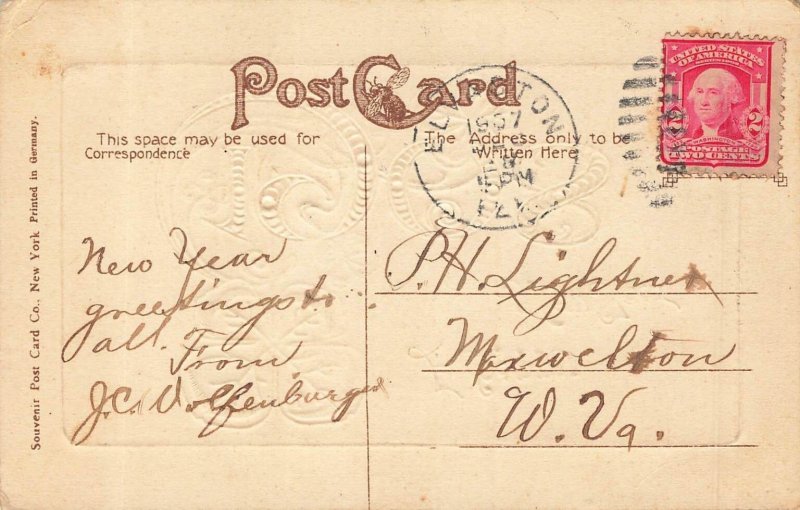 Post Card
This space may be used for
Correspondence
The Address only to be
Written Here
ELLENTON
1907
FLA.
UNITED STATES
OF AMERICA
2 2
POSTAGE
TWO CENTS
New Year
greetings to
all. From
J.C. Wolfenbarger
P.H. Lightner
Maxwelton
W. Va.
Souvenir Post Card Co., New York Printed in Germany.